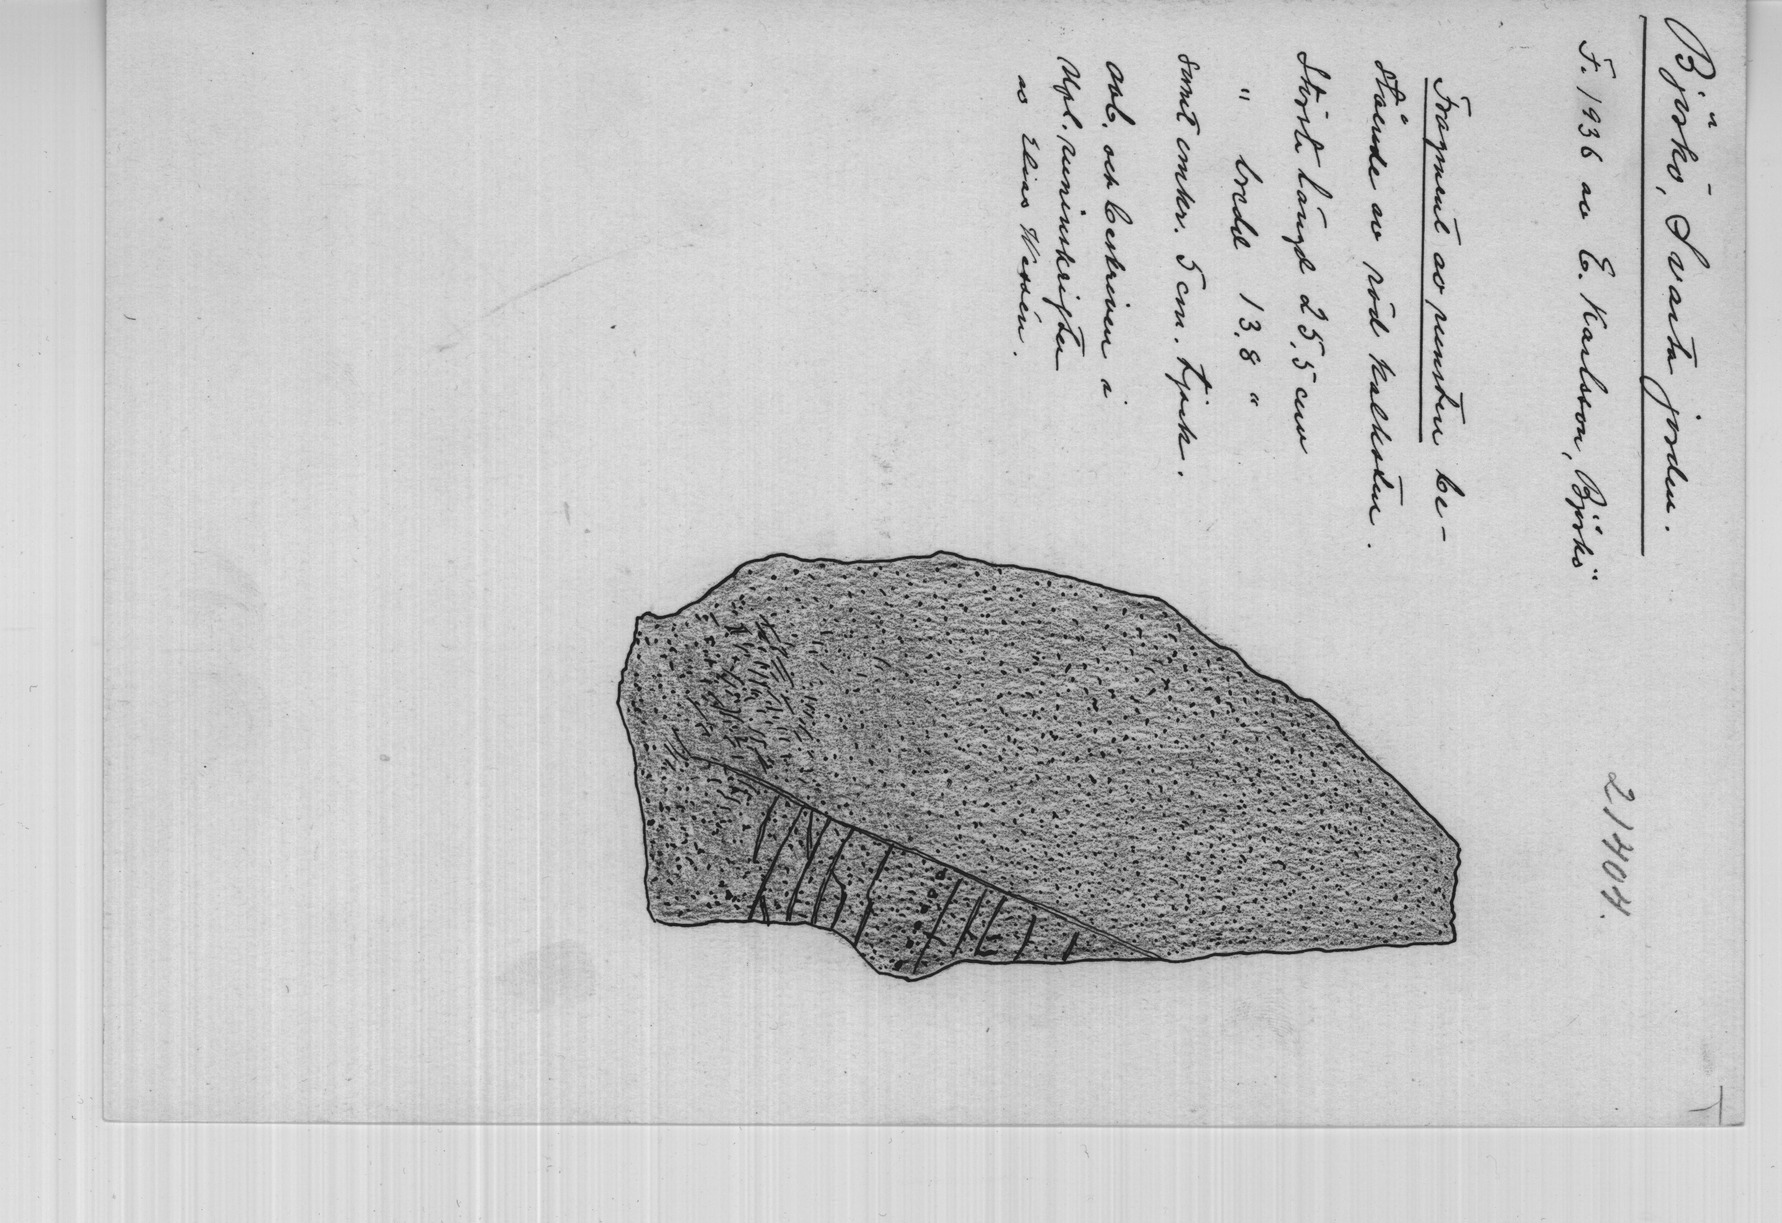 Björkö, Svarta jorden.
F. 1936 av E. Karlsson, "Björkö"
21404.
Fragment av runsten be-
stående av röd kalksten.
Största längd 25,5 cm
" bredd 13,8 "
samt omkr. 5 cm. tjock.
avb. och beskriven i
Upl. runinskrifter
av Elias Wessén.